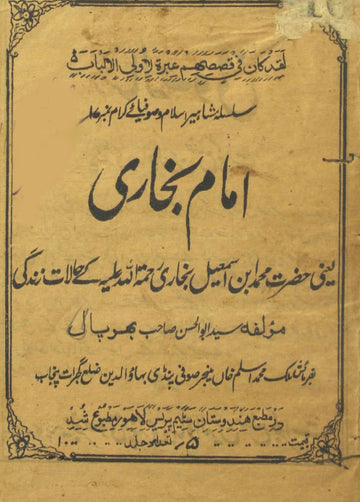 لقد كان في قصصهم عبرة لاولى الالباب
سلسلہ مشاہیر اسلام و صوفیائے کرام نمبر ۱۶
امام بخاری
یعنی حضرت محمد ابن اسمعیل بخاری رحمۃ اللہ علیہ کے حالات زندگی
مؤلفہ سید ابوالحسن صاحب بھرپالی
ملک محمد اسلم خاں مینجر صوفی پنڈی بہاؤالدین ضلع گجرات پنجاب
در مطبع ہندوستان سٹیم پریس لاہور مطبوع شد
قیمت ۵ر تعداد جلد ۱۰۰۰